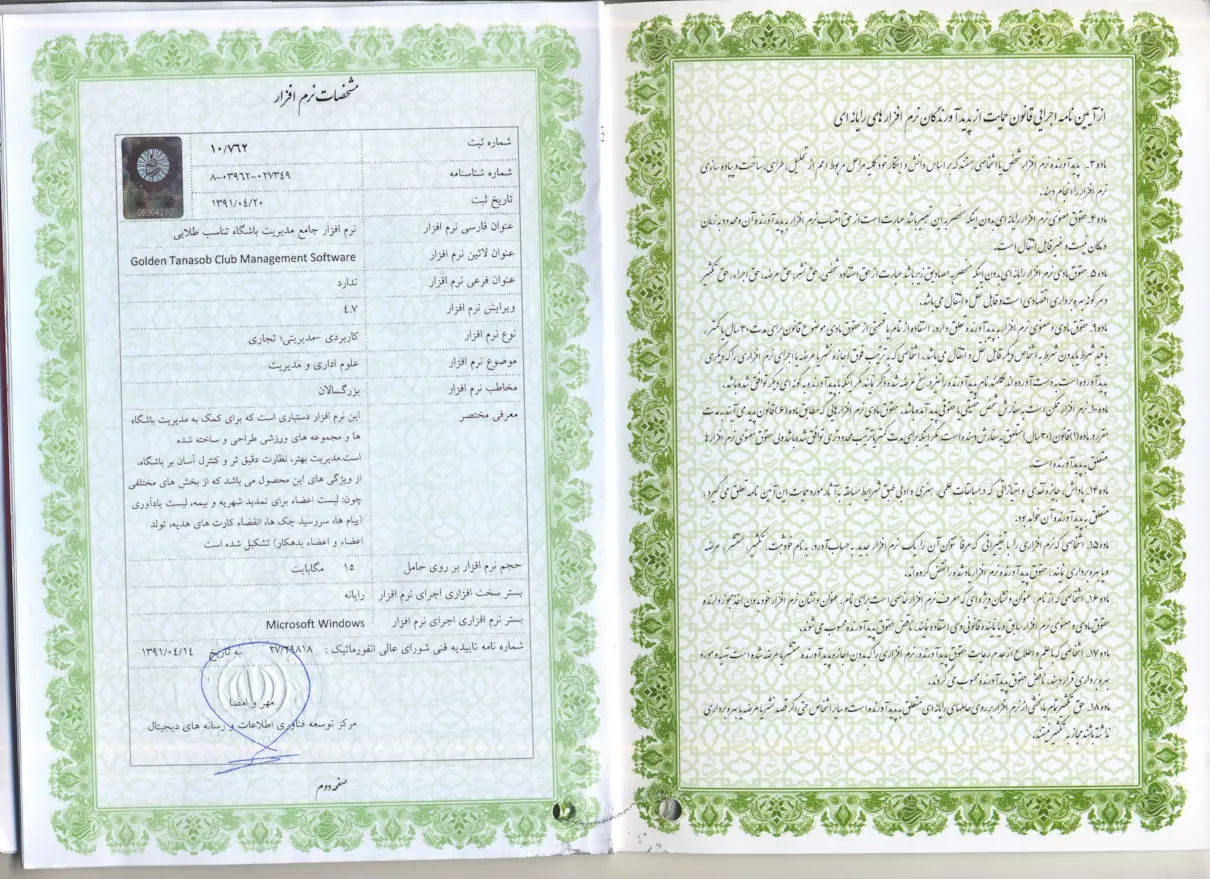 از آیین نامه اجرایی قانون حمایت از پدید آورندگان نرم افزار های رایانه ای
ماده ۳ـ پدیدآورنده نرم افزار شخص یا اشخاصی هستند که بر اساس دانش و ابتکار خود کلیه مراحل مربوط اعم از تحلیل، طراحی، ساخت و پیاده سازی
نرم افزار را انجام دهند.
ماده ۴ـ حقوق معنوی نرم افزار رایانه ای بدون اینکه منحصر به این تعبیر باشد عبارت است از حق انتساب نرم افزار به پدید آورنده آن و محدود به زمان
و مکان نیست و غیر قابل انتقال است.
ماده ۵ـ حقوق مادی نرم افزار رایانه ای بدون اینکه منحصر به مصادیق زیر باشد عبارت از حق استفاده شخصی، حق نشر، حق عرضه، حق اجراء، حق تکثیر
و هر گونه بهره برداری اقتصادی است و قابل نقل و انتقال می باشد.
ماده ۹ـ حقوق مادی و معنوی نرم افزار به پدید آورنده تعلق دارد، استفاده از تمام یا قسمتی از حقوق مادی موضوع قانون برای مدت ۳۰ سال یا کمتر،
با قید شرط یا بدون شرط به اشخاص دیگر قابل نقل و انتقال می باشد. اشخاصی که به ترتیب فوق اجازه نشر یا عرضه یا اجرای نرم افزاری را که دیگری
پدید آورده است به دست آورده اند مکلفند نام پدیدآورنده را نیز در نسخ عرضه شده ذکر نمایند مگر اینکه با پدید آورنده به گونه ای دیگر توافق شده باشد.
ماده ۱۰ـ نرم افزار ممکن است به سفارش شخص حقیقی یا حقوقی پدید آمده باشد. حقوق مادی نرم افزارهایی که مطابق ماده (۶) قانون پدید می آیند به مدت
مقرر در ماده (۱) قانون (۳۰ سال) متعلق به سفارش دهنده است. مگر اینکه برای مدت کمتر یا ترتیب محدودتری توافق شده باشد ولی حقوق معنوی نرم افزار
متعلق به پدیدآورنده است.
ماده ۱۴ـ پاداش، جایزه نقدی و امتیازاتی که در مسابقات علمی، هنری و ادبی طبق شرایط مسابقه به آثار مورد حمایت این آیین نامه تعلق می گیرد،
متعلق به پدیدآورنده آن خواهد بود.
ماده ۱۵ـ اشخاصی که نرم افزاری را با تغییراتی که عرفا نتوان آن را یک نرم افزار جدید به حساب آورد، به نام خود ثبت، تکثیر، منتشر، عرضه
و یا بهره برداری نمایند، حقوق پدیدآورنده نرم افزار یادشده را نقض کرده اند.
ماده ۱۶ـ اشخاصی که از نام، عنوان و نشان ویژه ای که معرف نرم افزار خاصی است برای نام، عنوان و نشان نرم افزار خود بدون اخذ مجوز دارنده
حقوق مادی و معنوی نرم افزار سابق و یا نماینده قانونی وی استفاده نمایند، ناقض حقوق پدیدآورنده محسوب می شوند.
ماده ۱۷ـ اشخاصی که با علم و اطلاع از عدم رعایت حقوق پدیدآورنده، نرم افزاری را که بدون اجازه پدیدآورنده منتشر یا عرضه شده است تهیه و مورد
بهره برداری قرار دهند، ناقض حقوق پدید آورنده محسوب می گردند.
ماده ۱۸ـ حق تکثیر تمام یا بخشی از نرم افزار بر روی حاملهای رایانه ای، متعلق به پدیدآورنده است و سایر اشخاص حتی اگر قصد نشر یا عرضه یا بهره برداری
نداشته باشند مجاز به تکثیر نیستند.
مشخصات نرم افزار
شماره ثبت ۱۰/۷۶۲
شماره شناسنامه ۸-۰۳۹۶۲-۰۲۷۳۴۹
تاریخ ثبت ۱۳۹۱/۰۴/۲۰
06964297
عنوان فارسی نرم افزار نرم افزار جامع مدیریت باشگاه تناسب طلایی
عنوان لاتین نرم افزار Golden Tanasob Club Management Software
عنوان فرعی نرم افزار ندارد
ویرایش نرم افزار ٤.٧
نوع نرم افزار کاربردی -مدیریتی؛ تجاری
موضوع نرم افزار علوم اداری و مدیریت
مخاطب نرم افزار بزرگسالان
معرفی مختصر این نرم افزار دستیاری است که برای کمک به مدیریت باشگاه
ها و مجموعه های ورزشی طراحی و ساخته شده
است.مدیریت بهتر، نظارت دقیق تر و کنترل آسان بر باشگاه،
از ویژگی های این محصول می باشد که از بخش های مختلفی
چون: لیست اعضاء برای تمدید شهریه و بیمه، لیست یادآوری
(پیام ها، سررسید چک ها، انقضاء کارت های هدیه، تولد
اعضاء و اعضاء بدهکار) تشکیل شده است
حجم نرم افزار بر روی حامل ۱۵ مگابایت
بستر سخت افزاری اجرای نرم افزار رایانه
بستر نرم افزاری اجرای نرم افزار Microsoft Windows
شماره نامه تاییدیه فنی شورای عالی انفورماتیک : ۲۷/۲۹۸۱۸ به تاریخ ۱۳۹۱/۰۴/۱۴
مهر و امضا
مرکز توسعه فناوری اطلاعات و رسانه های دیجیتال
صفحه دوم